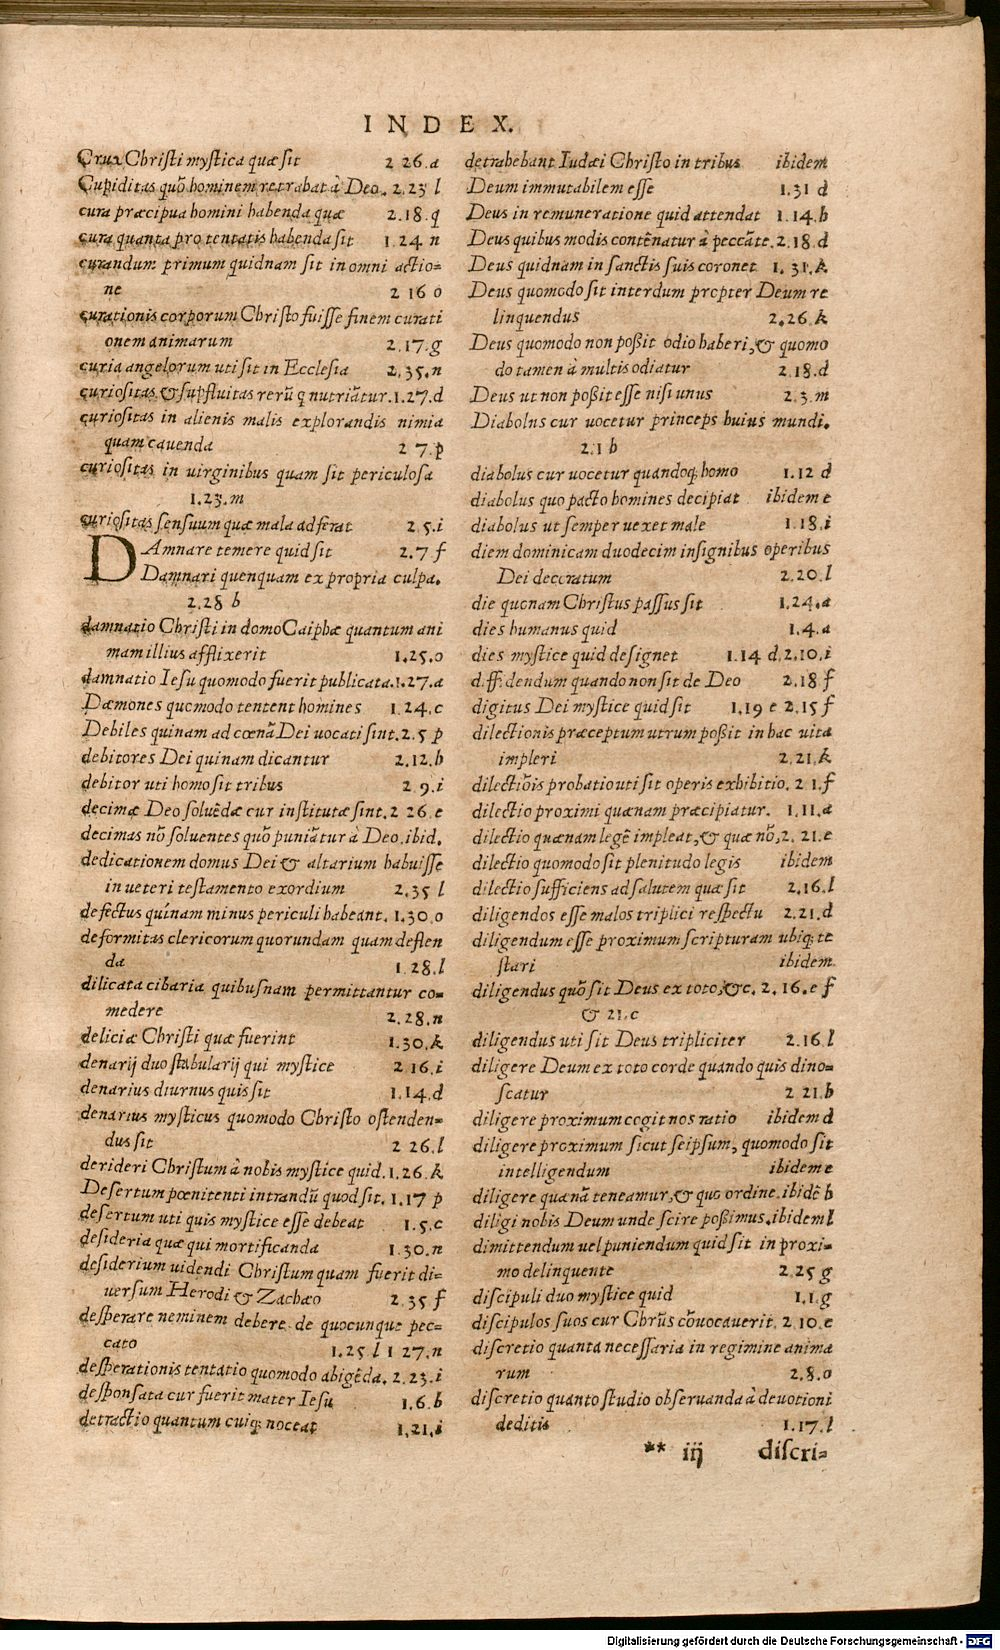 INDEX.
Crux Christi mystica quæ sit 2 26.a
Cupiditas quō hominem retrahat à Deo. 2.23 l
cura præcipua homini habenda quæ 2.18.q
cura quanta pro tentatis habenda sit 1.24 n
curandum primum quidnam sit in omni actio=
ne 2 16 o
curationis corporum Christo fuisse finem curati
onem animarum 2.17.g
curia angelorum uti sit in Ecclesia 2.35.n
curiositas & supfluitas rerū q nutriātur. 1.27.d
curiositas in alienis malis explorandis nimia
quam cauenda 2 7.p
curiositas in uirginibus quam sit periculosa
1.23.m
curiositas sensuum quæ mala adferat 2.5.i
DAmnare temere quid sit 2.7 f
Damnari quenquam ex propria culpa.
2.28 b
damnatio Christi in domo Caiphæ quantum ani
mam illius afflixerit 1.25.o
damnatio Iesu quomodo fuerit publicata. 1.27.a
Dæmones quomodo tentent homines 1.24.c
Debiles quinam ad cœnā Dei uocati sint. 2.5 p
debitores Dei quinam dicantur 2.12.b
debitor uti homo sit tribus 2 9.i
decimæ Deo soluēdæ cur institutæ sint. 2 26.e
decimas nō soluentes quō puniātur à Deo. ibid.
dedicationem domus Dei & altarium habuisse
in ueteri testamento exordium 2.35 l
defectus quinam minus periculi habeant. 1.30.o
deformitas clericorum quorundam quam deflen
da 1 28.l
dilicata cibaria quibusnam permittantur co=
medere 2.28.n
deliciæ Christi quæ fuerint 1.30.k
denarij duo stabularij qui mystice 2 16.i
denarius diurnus quis sit 1.14.d
denarius mysticus quomodo Christo ostenden=
dus sit 2 26.l
derideri Christum à nobis mystice quid. 1.26.k
Desertum pœnitenti intrandū quod sit. 1.17 p
desertum uti quis mystice esse debeat 1.5.c
desideria quæ qui mortificanda 1.30.n
desiderium uidendi Christum quam fuerit di=
uersum Herodi & Zachæo 2.35 f
desperare neminem debere de quocunque pec=
cato 1.25 l 1 27.n
desperationis tentatio quomodo abigēda. 2.23.i
desponsata cur fuerit mater Iesu 1.6.b
detractio quantum cuiq; noceat 1.21.i
detrahebant Iudæi Christo in tribus ibidem
Deum immutabilem esse 1.31 d
Deus in remuneratione quid attendat 1.14.b
Deus quibus modis contēnatur à peccāte. 2.18.d
Deus quidnam in sanctis suis coronet 1.31.k
Deus quomodo sit interdum propter Deum re
linquendus 2.26.k
Deus quomodo non poßit odio haberi, & quomo
do tamen à multis odiatur 2.18.d
Deus ut non poßit esse nisi unus 2.3.m
Diabolns cur uocetur princeps huius mundi.
2.1 b
diabolus cur uocetur quandoq; homo 1.12 d
diabolus quo pacto homines decipiat ibidem e
diabolus ut semper uexet male 1.18.i
diem dominicam duodecim insignibus operibus
Dei decoratum 2.20.l
die quonam Christus passus sit 1.24.a
dies humanus quid 1.4.a
dies mystice quid designet 1.14 d. 2.10.i
diffidendum quando non sit de Deo 2.18 f
digitus Dei mystice quid sit 1.19 e 2.15 f
dilectionis præceptum utrum poßit in hac uita
impleri 2.21.k
dilectiōis probatio uti sit operis exhibitio. 2 1.f
dilectio proximi quænam præcipiatur. 1.11.a
dilectio quænam legē impleat, & quæ nō, 2. 21.e
dilectio quomodo sit plenitudo legis ibidem
dilectio sufficiens ad salutem quæ sit 2.16.l
diligendos esse malos triplici respectu 2.21.d
diligendum esse proximum scripturam ubiq; te
stari ibidem
diligendus quō sit Deus ex toto, &c. 2. 16.e f
& 21.c
diligendus uti sit Deus tripliciter 2.16.l
diligere Deum ex toto corde quando quis dino=
scatur 2 21.b
diligere proximum cogit nos ratio ibidem d
diligere proximum sicut seipsum, quomodo sit
intelligendum ibidem e
diligere quænā teneamur, & quo ordine. ibidē b
diligi nobis Deum unde scire poßimus. ibidem l
dimittendum uel puniendum quid sit in proxi=
mo delinquente 2.25 g
discipuli duo mystice quid 1.1.g
discipulos suos cur Chrūs cōuocauerit. 2.10.e
discretio quanta necessaria in regimine anima
rum 2.8.o
discretio quanto studio obseruanda à deuotioni
deditis 1.17.l
** iij discri=
Digitalisierung gefördert durch die Deutsche Forschungsgemeinschaft - DFG